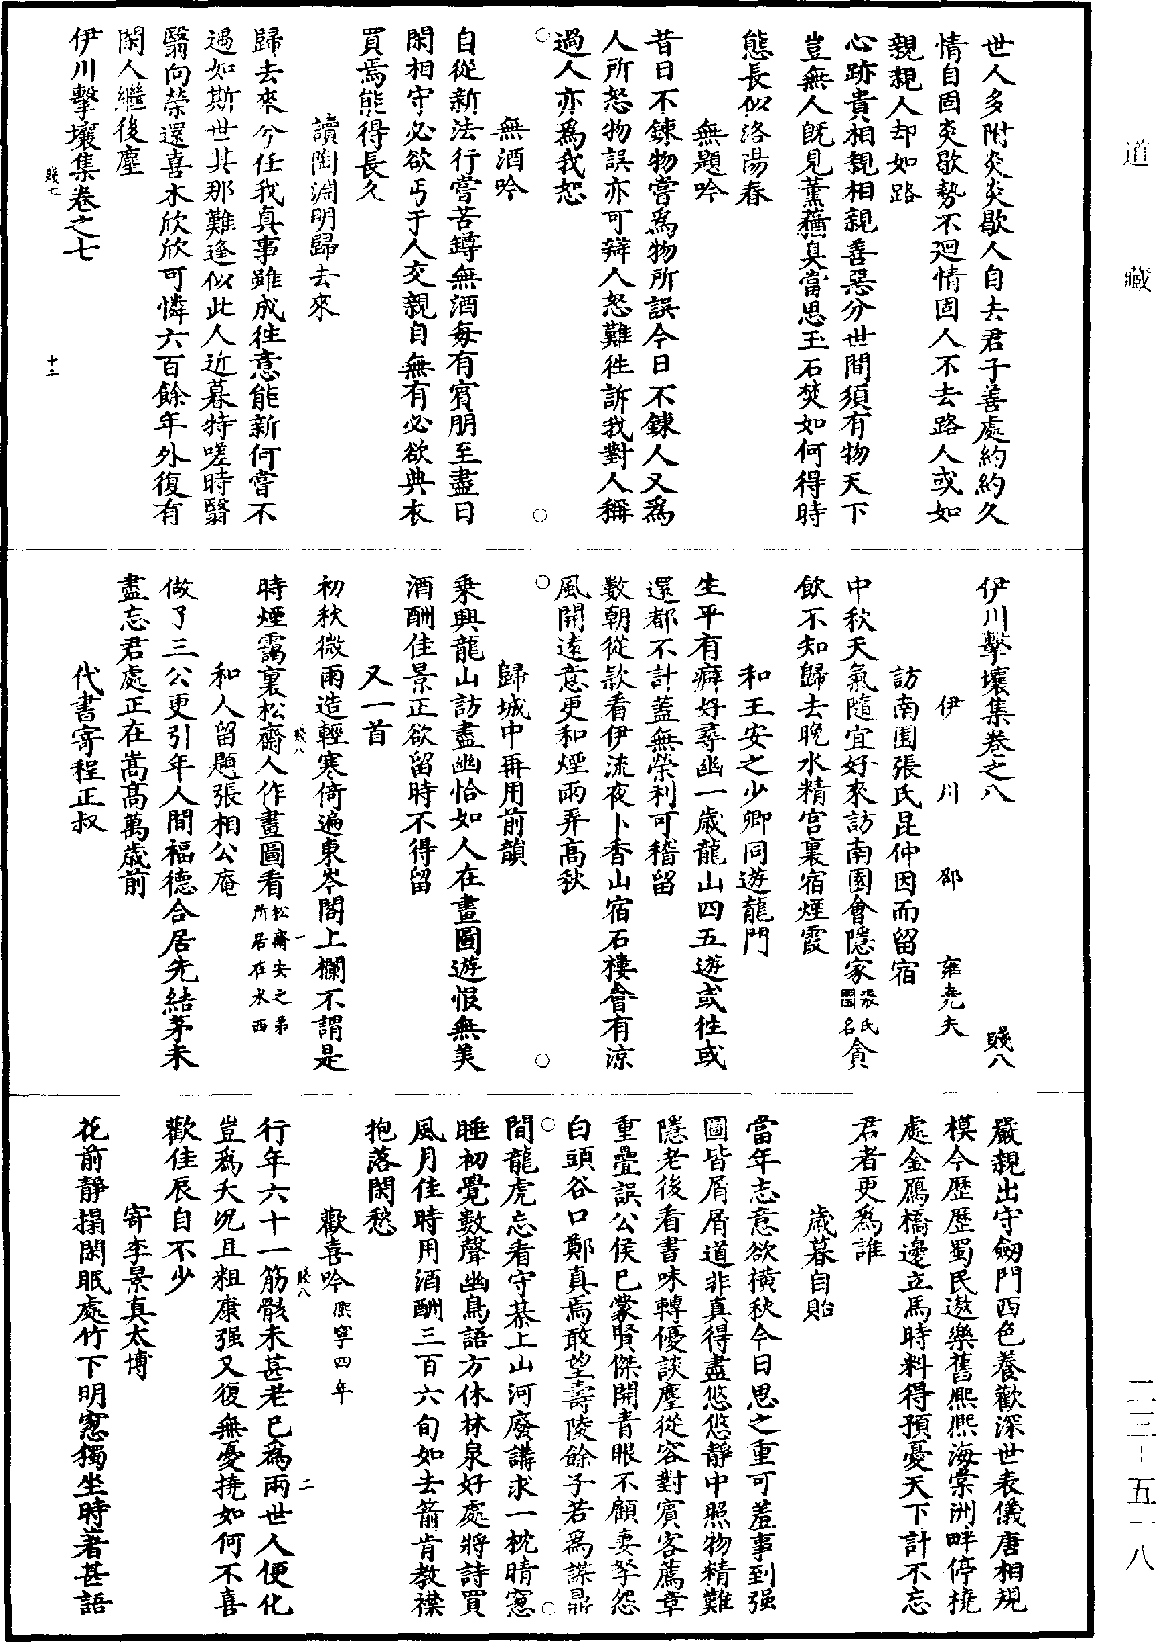 道藏
世人多附炎炎歇人自去君子善處約約久
情自固炎歇勢不廻情固人不去路人或如
親親人却如路
心跡貴相親相親善惡分世間須有物天下
豈無人旣見薰蕕臭當思玉石焚如何得時
態長似洛陽春
無題吟
昔日不鍊物嘗爲物所誤今日不鍊人又爲
人所怒物誤亦可辯人怒難徃訴我對人稱
過人亦爲我恕
無酒吟
自從新法行嘗苦罇無酒每有賓朋至盡日
閑相守必欲丐于人交親自無有必欲典衣
買焉能得長久
讀陶淵明歸去來
歸去來兮任我真事雖成徃意能新何嘗不
遇如斯世其那難逢似此人近暮特嗟時翳
翳向榮還喜木欣欣可憐六百餘年外復有
閑人繼後塵
伊川擊壤集卷之七
賤七
十二
伊川擊壤集卷之八
賤八
伊川邵雍堯夫
訪南園張氏昆仲因而留宿
中秋天氣隨宜好來訪南園會隱家張氏園名貪
飲不知歸去晚水精宮裏宿煙霞
和王安之少卿同遊龍門
生平有癖好尋幽一歲龍山四五遊或徃或
還都不計蓋無榮利可稽留
數朝從款看伊流夜卜香山宿石樓會有涼
風開遠意更和煙雨弄高秋
歸城中再用前韻
乘興龍山訪盡幽恰如人在畫圖遊恨無美
酒酬佳景正欲留時不得留
又一首
初秋微雨造輕寒倚遍東岑閣上欄不謂是
賤八
一
時煙靄裏松齋人作畫圖看松齋安之弟所居在水西
和人留題張相公庵
做了三公更引年人間福德合居先結茅未
盡忘君處正在嵩高萬歲前
代書寄程正叔
嚴親出守劒門西色養歡深世表儀唐相規
模今歷歷蜀民遨樂舊熙熙海棠洲畔停橈
處金鴈橋邊立馬時料得預憂天下計不忘
君者更爲誰
歲暮自貽
當年志意欲橫秋今日思之重可羞事到强
圖皆屑屑道非真得盡悠悠靜中照物精難
隱老後看書味轉優談麈從容對賓客薦章
重疊誤公侯已蒙賢傑開青眼不顧妻孥怨
白頭谷口鄭真焉敢望壽陵餘子若爲謀鼎
間龍虎忘看守棊上山河廢講求一枕晴窻
睡初覺數聲幽鳥語方休林泉好處將詩買
風月佳時用酒酬三百六旬如去箭肯教襟
抱落閑愁
歡喜吟熙寧四年
賤八
二
行年六十一筋骸未甚老已為兩世人便化
豈爲夭況且粗康强又復無憂撓如何不喜
歡佳辰自不少
寄李景真太博
花前靜榻閑眠處竹下明窻獨坐時著甚語
二三-五一八